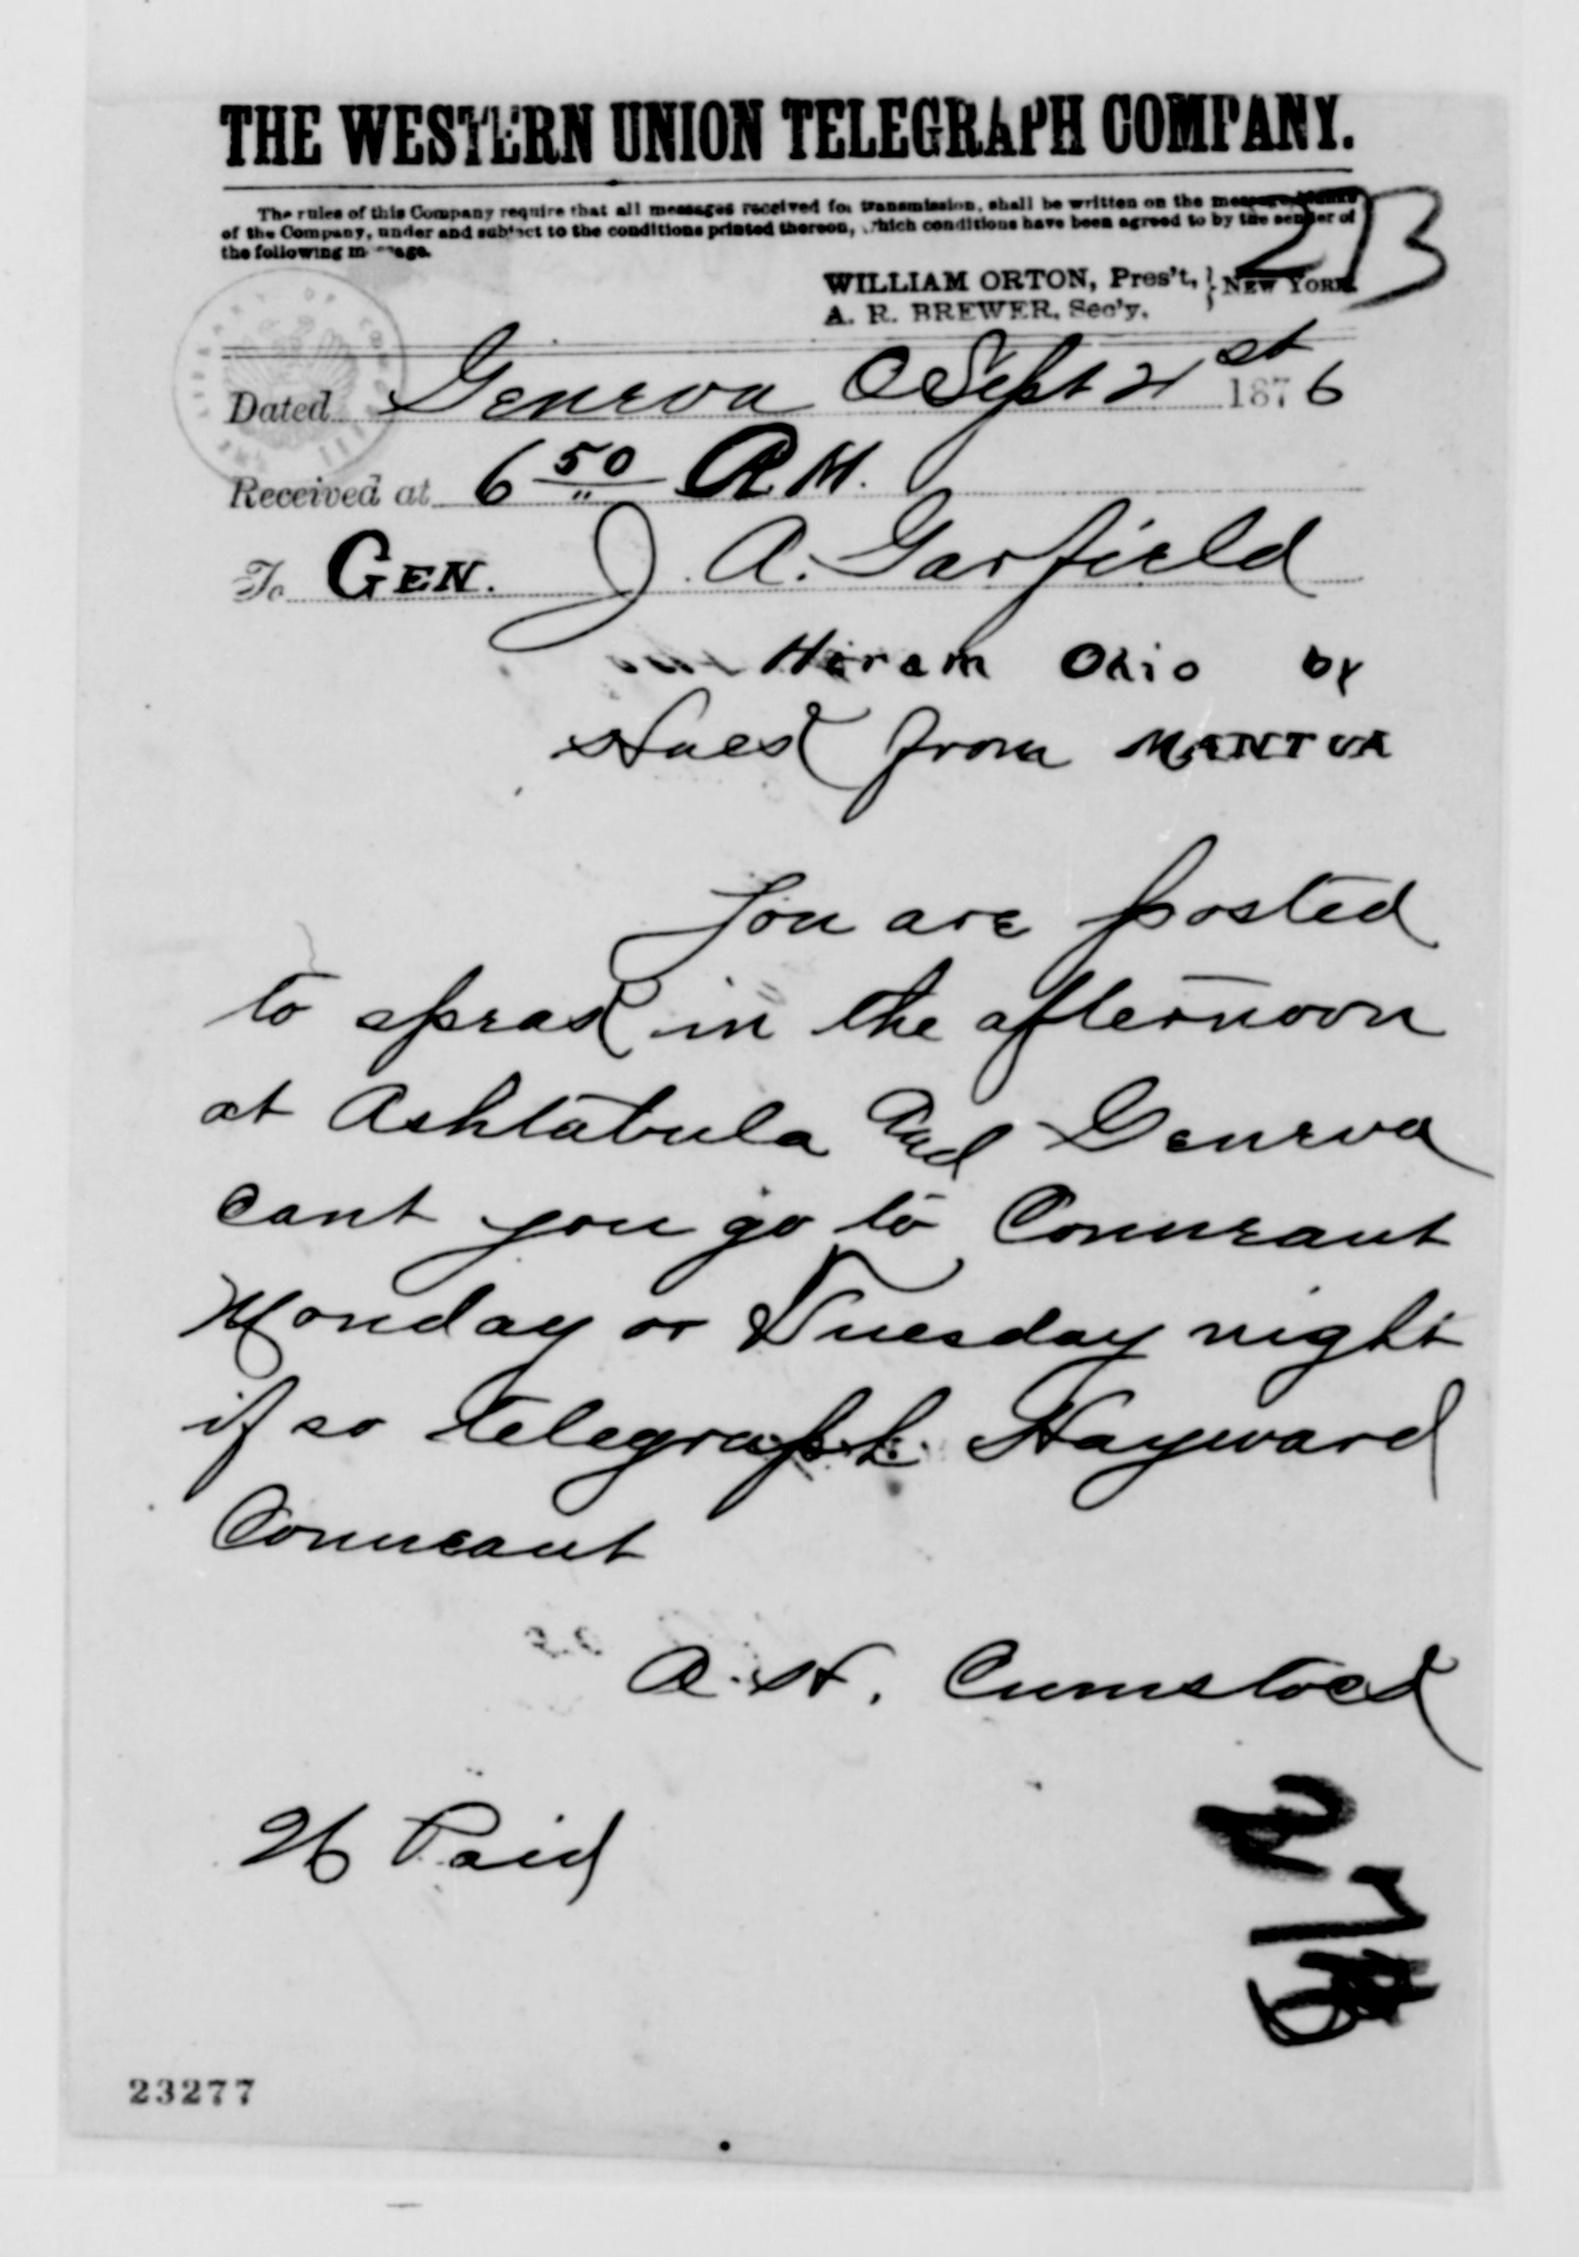 THE WESTERN UNION TELEGRAPH COMPANY.
The rules of this Company require that all messages received for transmission, shall be written on the message blanks
of the Company, under and subject to the conditions printed thereon, which conditions have been agreed to by the sender of
the following message.
23
WILLIAM ORTON, Pres't, } NEW YORK.
A. R. BREWER, Sec'y,
Dated Geneva O Sept 21st 1876
Received at 6 50 P.M.
To GEN. J. A. Garfield
Hiram Ohio by
Hack from MANTUA
You are posted
to speak in the afternoon
at Ashtabula And Geneva
cant you go to Conneaut
Monday or Tuesday night
if so telegraph Hayward
Conneaut
A. H. Cumstock
26 Paid
23277